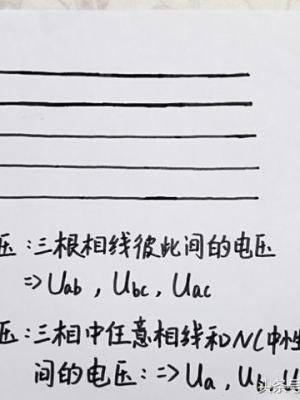 压:三根相线彼此间的电压
=>Uab, Ubc, Uac
压:三相中任意相线和N(中性
间的电压: => Ua, Ub, U
头条号